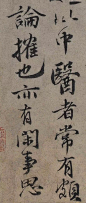 以中醫者常有頗
論擁也亦有閑事思